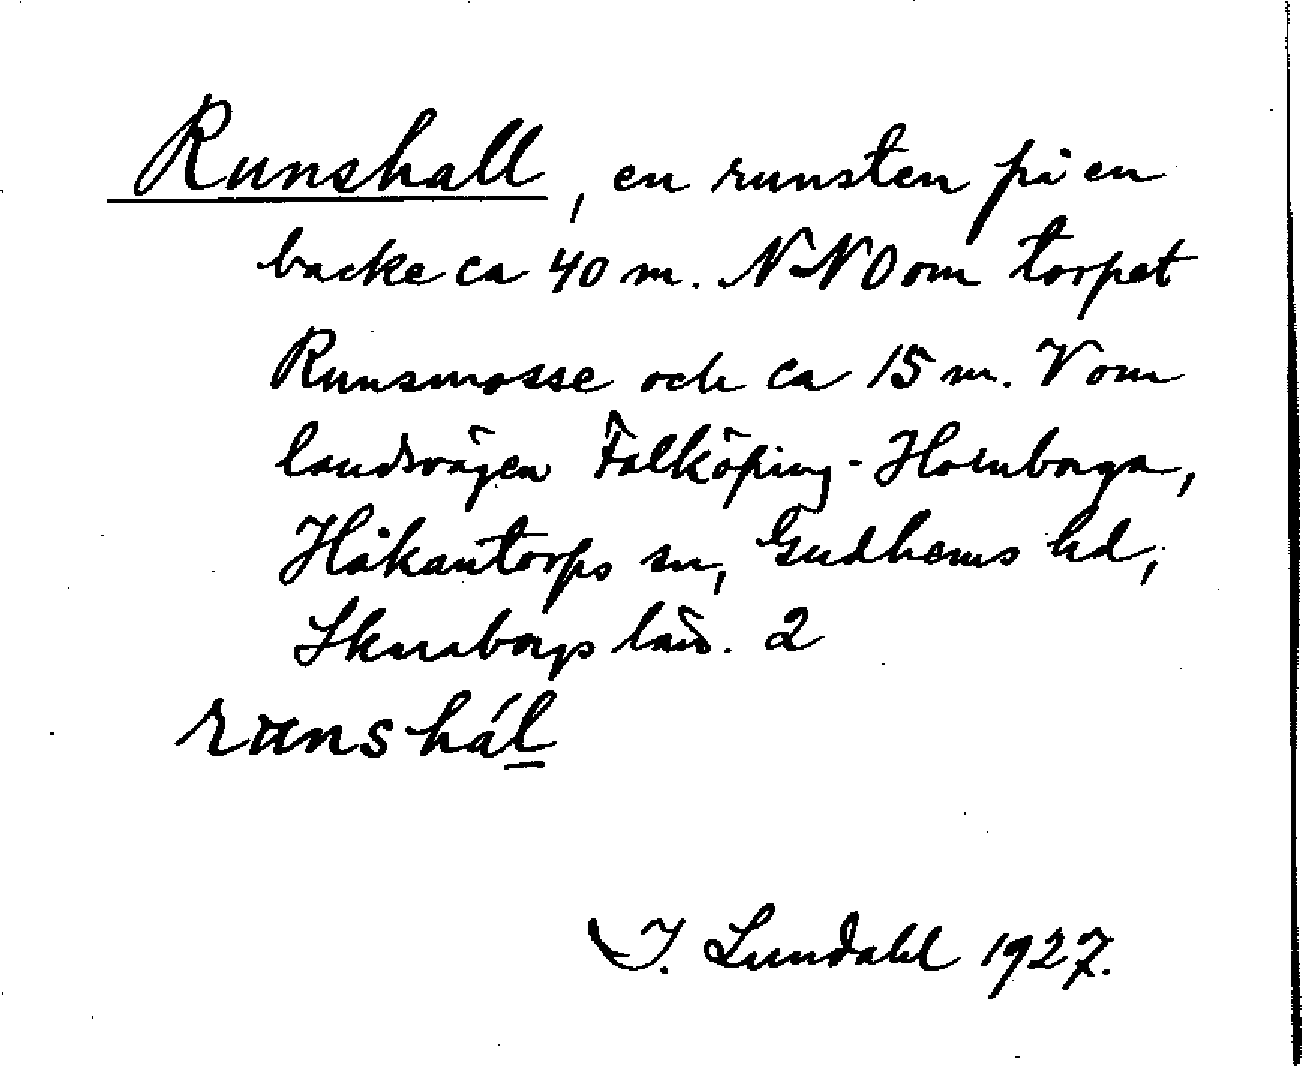 Runshall, en runsten på en
backe ca 40 m. N-NO om torpet
Runsmosse och ca 15 m. V om
landsvägen Falköping-Hornborga,
Håkantorps sn, Gudhems hd,
Skaraborgs län. 2
runshál
I. Lundahl 1927.